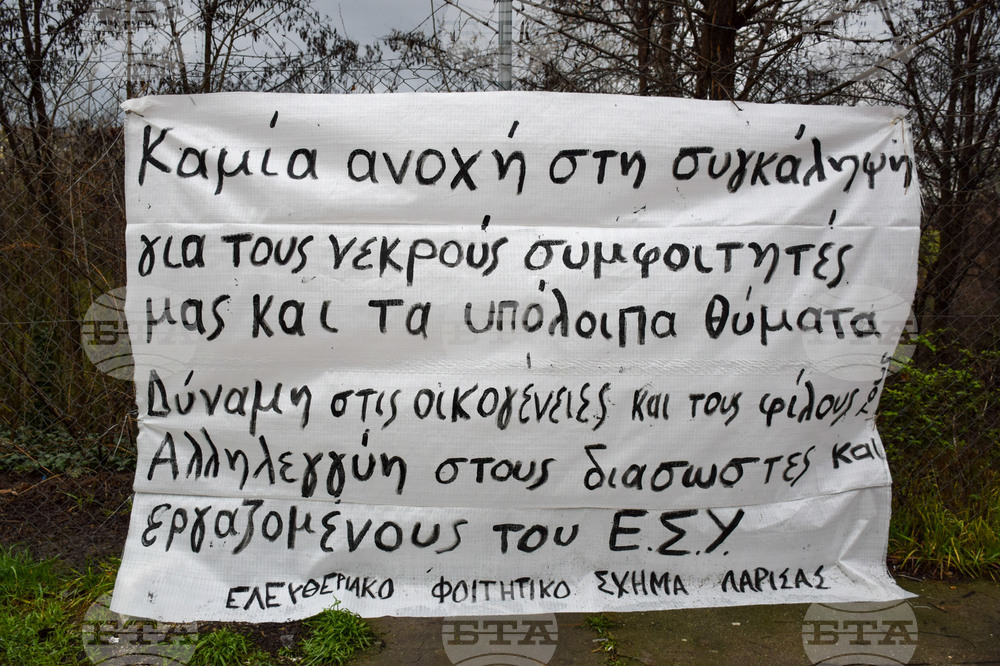 Καμία ανοχή στη συγκάληψη
για τους νεκρούς συμφοιτητές
μας και τα υπόλοιπα θύματα
Δύναμη στις οικογένειες και τους φίλους
Αλληλεγγύη στους διασωστες και
εργαζομένους του Ε.Σ.Υ.
ΕΛΕΥΘΕΡΙΑΚΟ ΦΟΙΤΗΤΙΚΟ ΣΧΗΜΑ ΛΑΡΙΣΑΣ
БТА
БТА
БТА
БТА
БТА